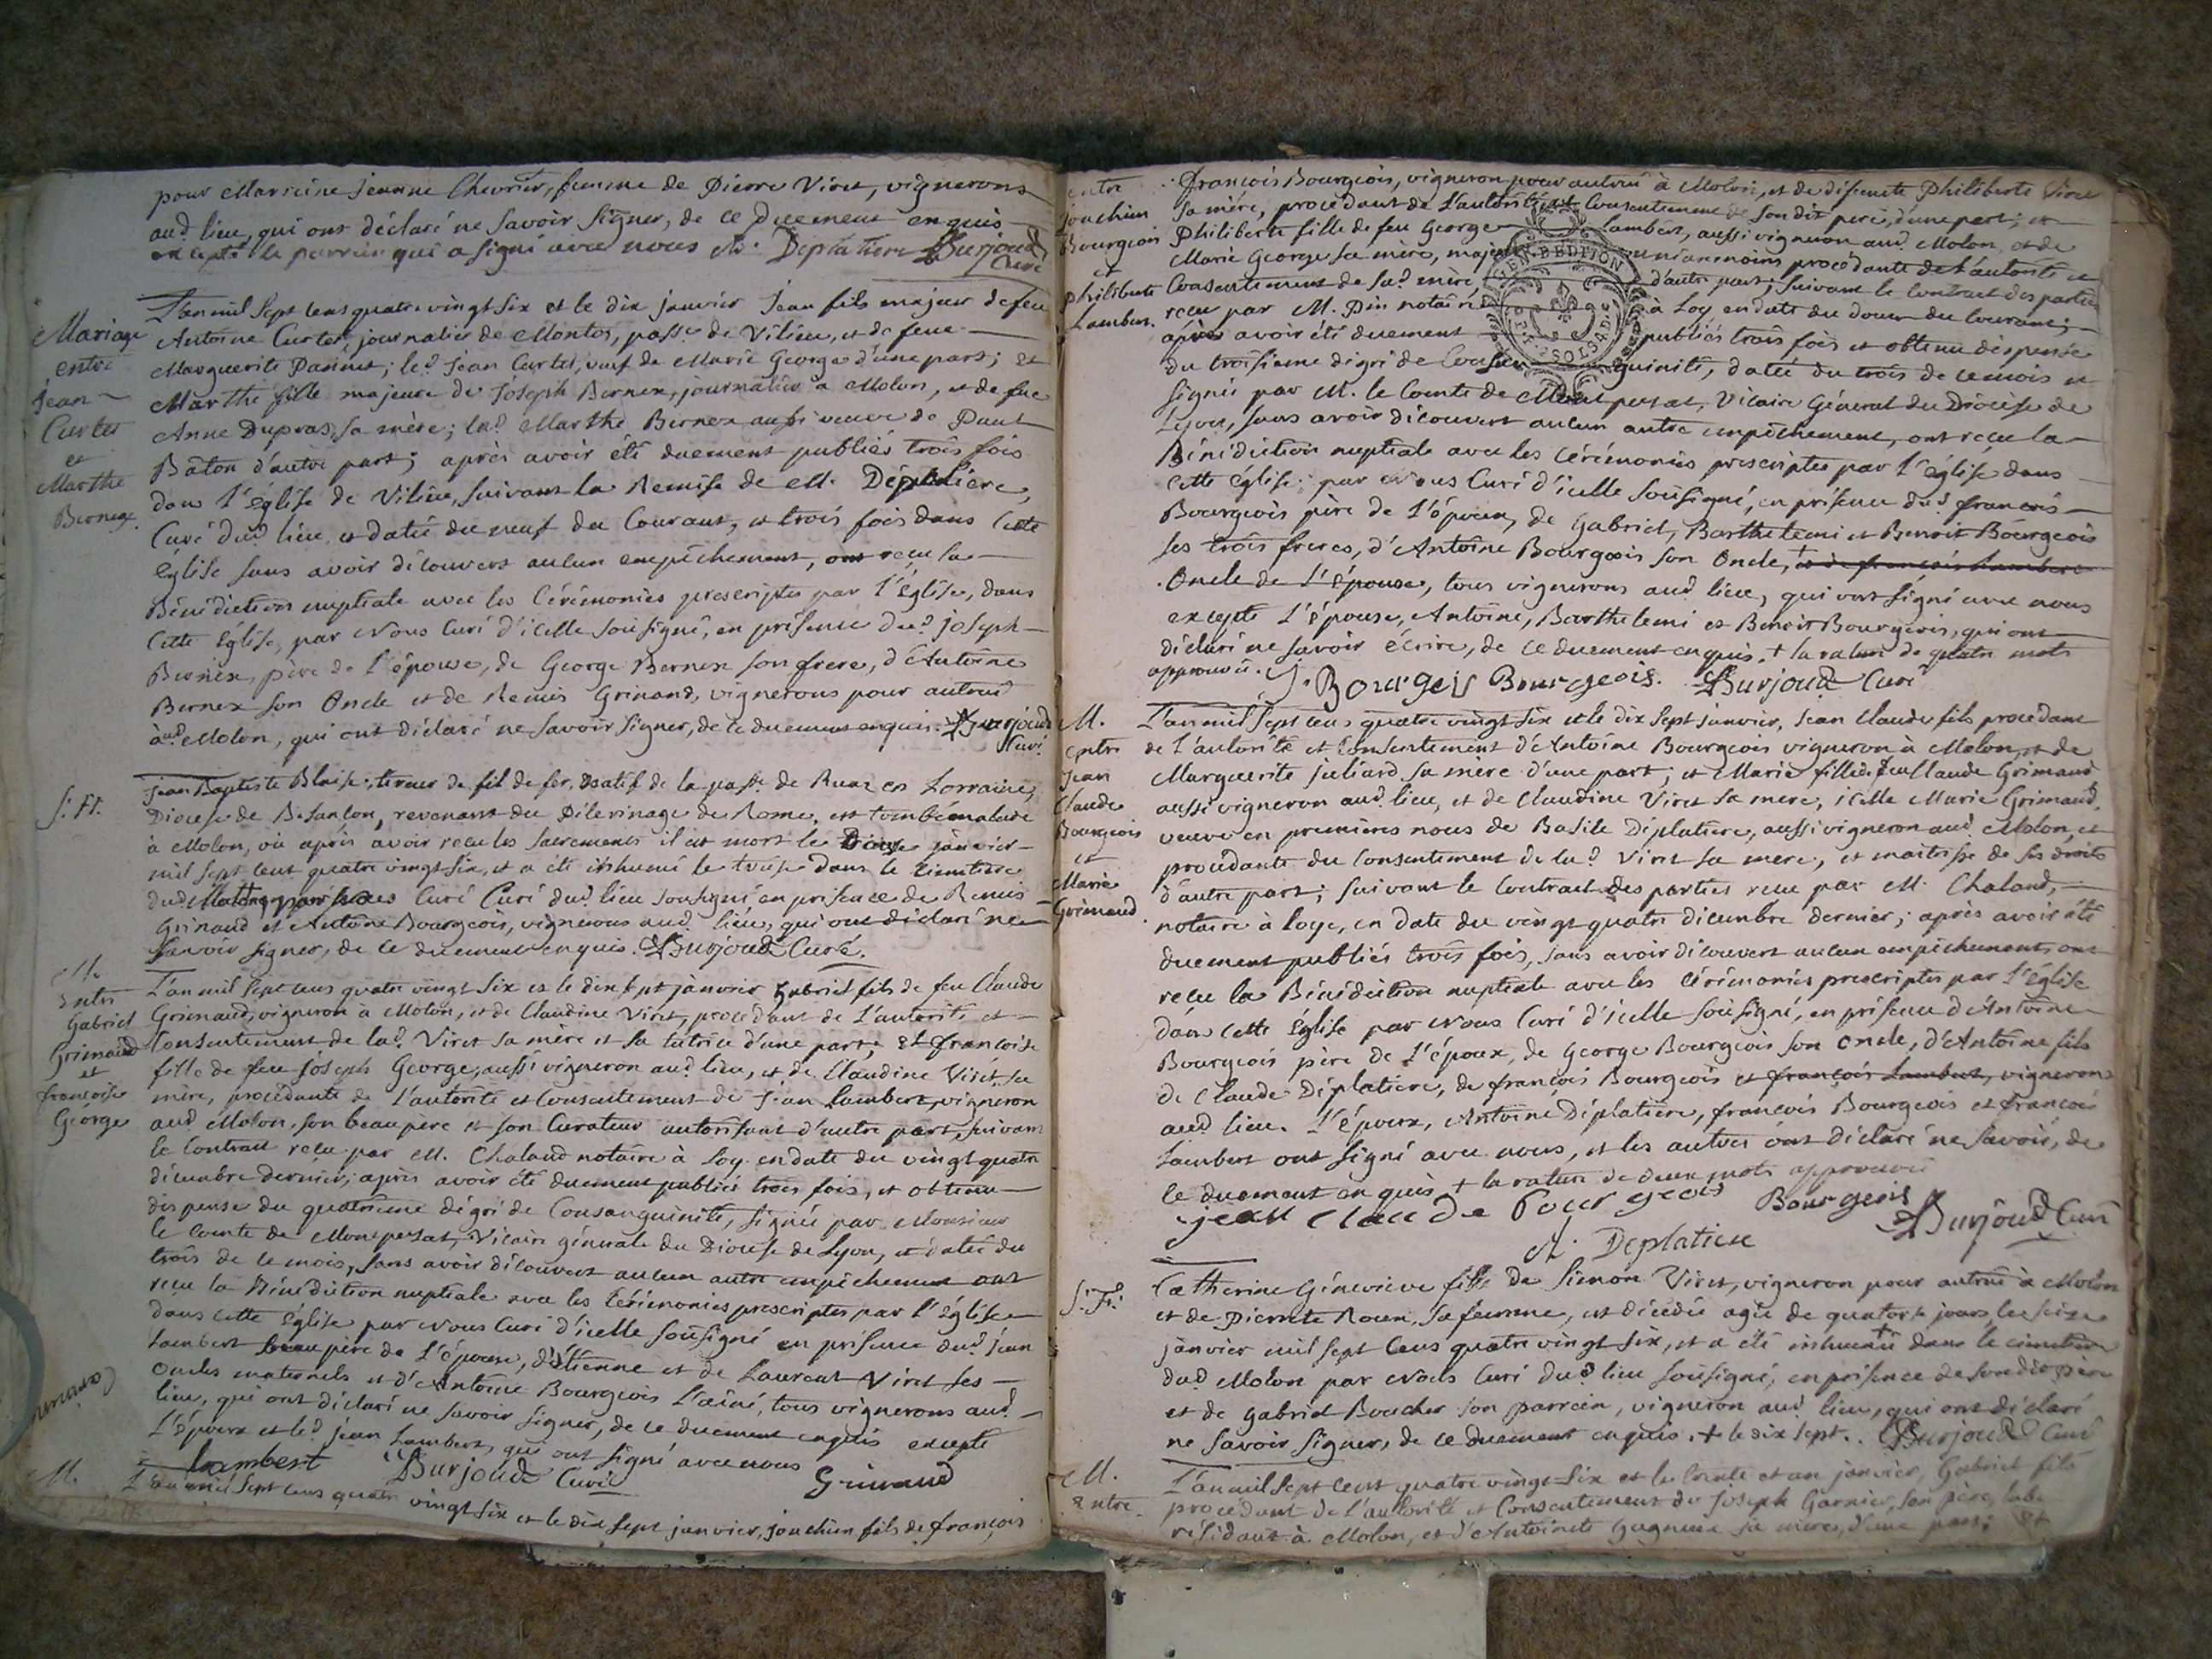 pour Marreine jeanne Chevrier, femme de Pierre Viret, vignerons
aud. lieu, qui ont déclaré ne savoir signer, de ce duement enquis
excepté le parrein qui a signé avec nous A. Deplatiere Burjoud
Curé
Mariage
entre
Jean
Curtet
et
Marthe
Bernex.
L'an mil sept cens quatre vingt six et le dix janvier Jean fils majeur de feu
Antoine Curtet, journalier de Montos, passe. de Vilieu, et de feue
Marguerite Pannet; led. Jean Curtet, veuf de Marie George d'une part; et
Marthe fille majeure de Joseph Bernex, journalier à Molon, et de feue
Anne Dupras, sa mère; lad. Marthe Bernex aussi veuve de
Bâton d'autre part; après avoir été duement publiés trois fois
dans l'église de Vilieu, suivant la Remise de M. Déplatiere,
Curé dud. lieu, et datée du neuf du Courant, et trois fois dans Cette
église sans avoir découvert aucun empêchement, ont reçu la
Bénédiction nuptiale avec les Cérémonies prescriptes par l'église, dans
Cette église, par Nous Curé d'icelle soussigné, en présence dud. joseph
Bernex, père de l'épouse, de George Bernex son frere, d'Antoine
Bernex son Oncle et de Remis Grinand, vignerons pour autrui
aud. Molon, qui ont déclaré ne savoir signer, de ce duement enquis. Burjoud
Curé.
S: Ft.
Jean Baptiste Blaise, tireur de fil de fer, natif de la pass. de Ruaz en Lorraine,
Diocese de Besançon, revenant du Pélerinage de Rome, est tombé malade
à Molon, où après avoir reçu les sacremens il est mort le Douze janvier
mil sept cent quatre vingt six, et a été inhumé le treise dans le cimetiere
dud. Molon, par Nous Curé Curé dud. lieu soussigné en présence de Remis
Grinand et Antoine Bourgeois, vignerons aud. lieu, qui ont déclaré ne
savoir signer, de ce duement enquis. Burjoud Curé.
M.
Entre
Gabriel
Grimaud
et
françoise
George
L'an mil sept cens quatre vingt six et le dix sept janvier Gabriel fils de feu Claude
Grimaud, vigneron à Molon, et de Claudine Viret, procédant de l'autorité et
Consentement de lad. Viret sa mère et sa tutrice d'une part; et françoise
fille de feu joseph George, aussi vigneron aud. lieu, et de Claudine Viret, sa
mère, procédante de l'autorité et Consentement de jean Lambert, vigneron
aud. Molon, son beau père et son Curateur autorisant d'autre part, suivant
le Contrat reçu par M. Chaland notaire à Loy. en date du vingt quatre
décembre dernier; après avoir été duement publiés trois fois, et obtenu
dispense du quatrieme dégré de Consanguinité, signée par Monsieur
le Comte de Montpersat, Vicaire générale du Diocese de Lyon, et datée du
trois de ce mois, sans avoir découvert aucun autre empêchement ont
reçu la Bénédiction nuptiale avec les Cérémonies prescriptes par l'église
dans cette église par Nous Curé d'icelle soussigné en présence dud. jean
Lambert beau père de l'épouse, d'étienne et de Laurent Viret ses
oncles maternels et d'Antoine Bourgeois l'ainé, tous vignerons aud.
lieu, qui ont déclaré ne savoir signer, de ce duement enquis excepté
l'époux et led. jean Lambert, qui ont signé avec nous
Lambert Burjoud Curé Grimaud
M.
L'an mil sept cens quatre vingt six et le dix sept janvier, joachim fils de françois
entre
joachim
Bourgeois
et
philiberte
Lambert.
françois Bourgeois, vigneron pour autrui à Molon, et de défunte Philiberte Viret
sa mère, procédant de l'autorité et Consentement de son dit pere, d'une part; et
Philiberte fille de feu George Lambert, aussi vigneron aud. Molon, et de
Marie George sa mère, majeure néanmoins procédante de l'autorité et
Consentement de sad. mère, d'autre part; suivant le Contract des parties
reçu par M. Pin notaire à Loy. en date du douze du Courant;
après avoir été duement publiés trois fois et obtenu dispense
du troisieme dégré de Consanguinité, datée du trois de ce mois et
signée par M. le Comte de Montpersat, Vicaire Général du Diocèse de
Lyon, sans avoir découvert aucun autre empêchement, ont reçu la
Bénédiction nuptiale avec les Cérémonies prescriptes par l'église dans
cette église; par Nous Curé d'icelle soussigné, en présence dud. françois
Bourgeois père de l'époux, de Gabriel, Barthelemi et Benoit Bourgeois
ses trois freres, d'Antoine Bourgeois son Oncle, + et de françois Lambert
Oncle de l'épouse, tous vignerons aud. lieu, qui ont signé avec nous
excepté l'épouse, Antoine, Barthelemi et Benoit Bourgeois, qui ont
déclaré ne savoir écrire, de ce duement enquis. + la rature de quatre mots
approuvée. J. Bourgeis Bourgeois. Burjoud Curé
M.
entre
Jean
Claude
Bourgeois
et
Marie
Grimaud.
L'an mil sept cens quatre vingt six et le dix sept janvier, Jean Claude fils procédant
de l'autorité et Consentement d'Antoine Bourgeois vigneron à Molon, et de
Marguerite juliard sa mère d'une part; et Marie fille de feu Claude Grimaud
aussi vigneron aud. lieu, et de Claudine Viret sa mere, icelle Marie Grimaud,
veuve en premières noces de Basile Déplatiere, aussi vigneron aud. Molon, et
procédante du Consentement de lad. Viret sa mere, et maitresse de ses droits
d'autre part; suivant le Contract des parties reçu par M. Chaland,
notaire à Loye, en date du vingt quatre décembre dernier; après avoir été
duement publiés trois fois, sans avoir découvert aucun empêchement, ont
reçu la Bénédiction nuptiale avec les cérémonies prescriptes par l'église
dans cette église par Nous Curé d'icelle soussigné, en présence d'Antoine
Bourgeois père de l'époux, de George Bourgeois son oncle, d'Antoine fils
de Claude Déplatiere, de françois Bourgeois et françois Lambert, vignerons
aud. lieu. L'époux, Antoine Déplatiere, françois Bourgeois et françois
Lambert ont signé avec nous, et les autres ont déclaré ne savoir, de
ce duement enquis + la rature de deux mots approuvée
jean Claude Bourgeois Bourgeois Burjoud Curé
A. Deplatiere
S: Ft:
Catherine Génevieve fille de Simon Viret, vigneron pour autrui à Molon
et de Pierrette Roux, sa femme, est décédée agée de quatorze jours le seize
janvier mil sept cens quatre vingt six, et a été inhumée + dans le cimetiere
dud. Molon par Nous Curé dud. lieu soussigné, en présence de son dit père
et de Gabriel Boucher son parrein, vigneron aud. lieu, qui ont déclaré
ne savoir signer, de ce duement enquis. + le dix sept. Burjoud Curé
M.
Entre
L'an mil sept cent quatre vingt six et le trente et un janvier, Gabriel fils
procédant de l'autorité et Consentement de joseph Garnier, son père,
résidant à Molon, et d'Antoinette sa mère, d'une part; et